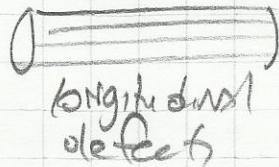 longitudinal
defects